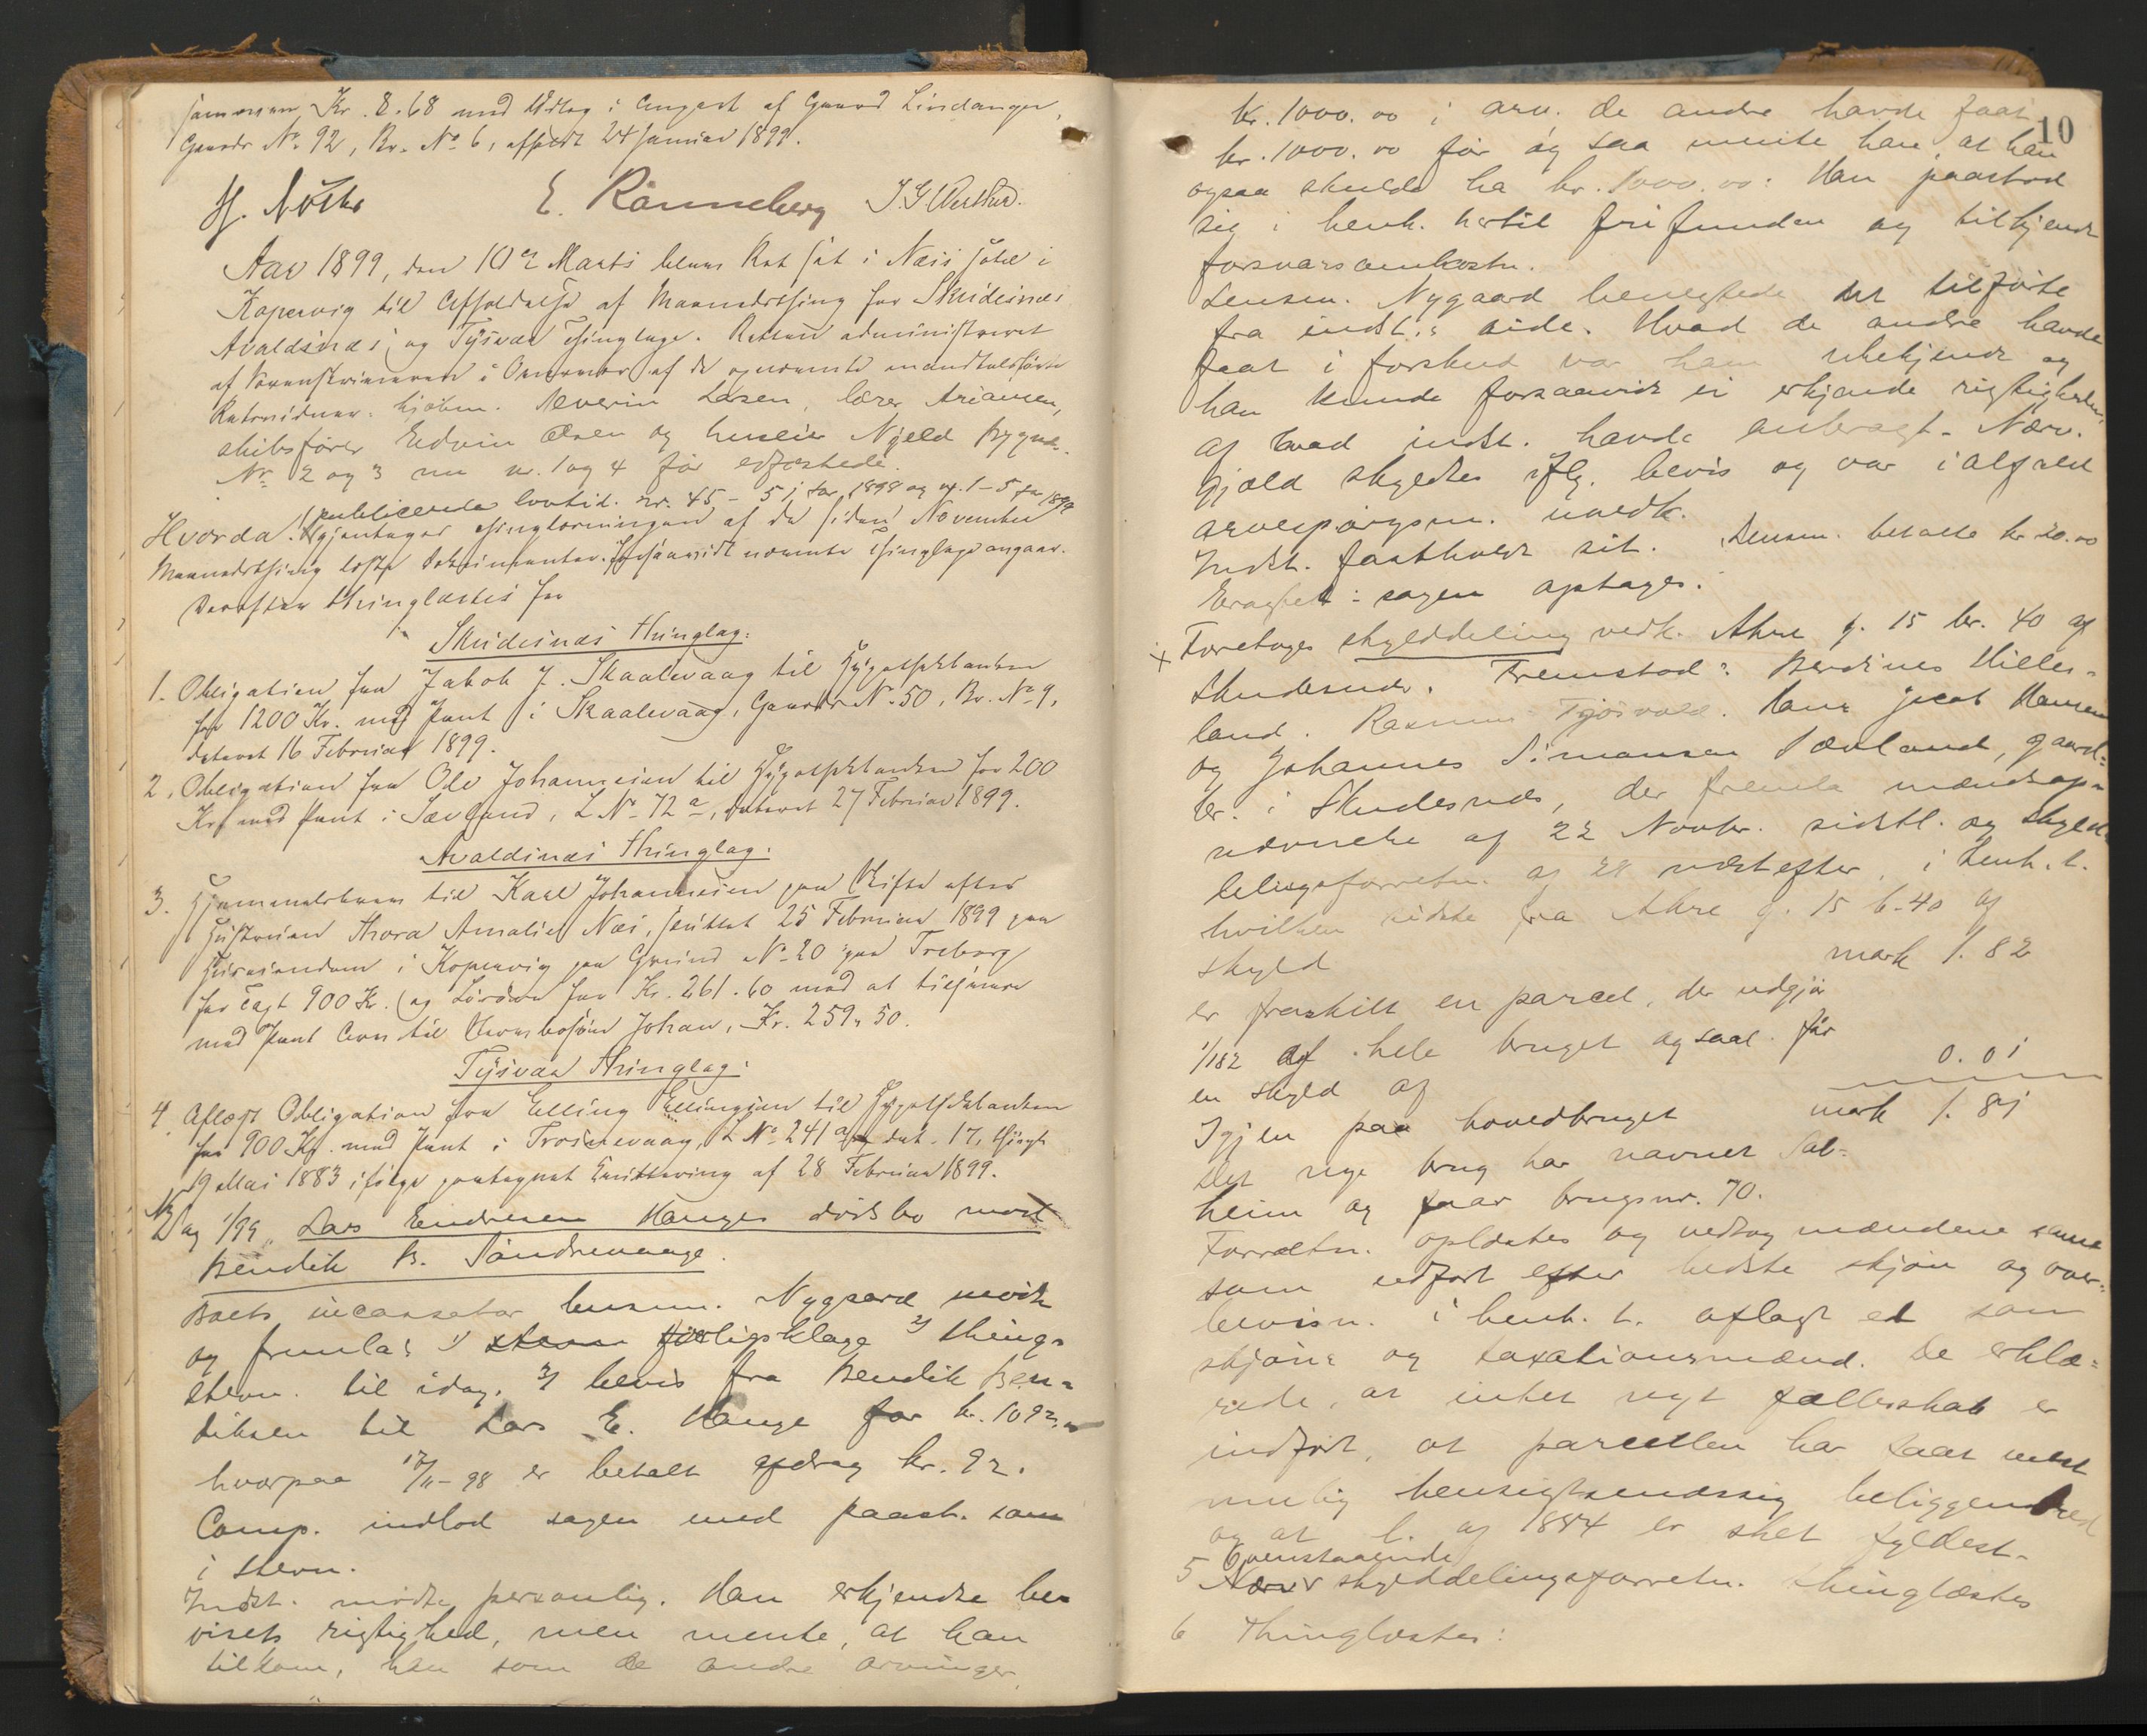 sammen Kr. 8.68 med Udlæg i Anpart af Gaard Lindanger,
Gaards No 92, Br. No 6, afholdt 24 Januar 1899.
E. Rönneberg
Aar 1899, den 10de Marts blev Ret sat i Næs Hotel i
Kopervig til Afholdelse af Maanedsthing for Skudesnæs
Avaldsnæs og Tysvær Thinglage. Retten administreret
af Sorenskriveren i Overvær af de opnævnte mandtalsførte
Retsvidner: kjøbm. Severin Lasen, lærer Ariansen,
skibsfører Edvin Olsen og huseier Njeld Bygnes.
No 2 og 3 nu nr. 1 og 4 før edfæstede.
publicerede lovtid. nr. 45 - 51 for 1898 og nr. 1-5 for 1899
Hvorda. gjentages Thinglæsningen af de siden November
Maanedsthing læste Dokumenter forsaavidt nævnte Thinglage angaar.
Derefter thinglæstes for
Skudesnæs Thinglag:
1. Obligation fra Jakob J. Skaalevaag til Hypothekbanken
for 1200 Kr. med Pant i Skaalevaag, Gaards No 50, Br. No 9,
dateret 16 Februar 1899.
2. Obligation fra Ole Johannesen til Hypothekbanken for 200
Kr. med Pant i Sævland, L No 72a, dateret 27 Februar 1899.
Avaldsnæs Thinglag:
3. Hjemmelsbrev til Karl Johannesen paa Skifte efter
Hustruen Thora Amalie Næs, sluttet 25 Februar 1899 paa
Huseiendom i Kopervig paa Grund No 20 paa Treborg
for Taxt 900 Kr. og Løsøre for Kr. 261.60 mod at tilsvare
med Pant Arv til Arvebosøn Johan, Kr. 259.50.
Tysvær Thinglag:
4. Aflæst Obligation fra Elling Ellingsen til Hypothekbanken
for 900 Kr. med Pant i Trosnevaag, L No 241a, dat. 17, thinglæst
19 Mai 1883 ifølge paategnet Kvittering af 28 Februar 1899.
Sag 1/99. Lars Endresen Hauges dødsbo mod
Bendik B. Søndrevaage.
Boets incassator lensm. Nygaard mødte
og fremla: 1) forligsklage 2) things-
stevn. til idag. 3) bevis fra Bendik Ben-
diksen til Lars E. Hauge for kr. 1092.00
hvorpaa 17/11-98 er betalt afdrag kr. 92.
Comp. indlod sagen med paast. som
i stevn.
Indst. mødte personlig. Han erkjendte be-
visets rigtighed, men mente, at han
tilkom, han som de andre arvinger
10
kr. 1000.00 i arv. de andre havde faat
kr. 1000.00 før og saa mente han, at han
ogsaa skulde ha kr. 1000.00: Han paastod
sig i henh. hertil frifunden og tilkjendt
forsvarsomkostn.
Lensm. Nygaard benegtede det tilførte
fra indst.s side. Hvad de andre havde
faat i forskud var ham ubekjendt og
han kunde forsaavidt ei erkjende rigtigheden
af hvad indst. havde anbragt. Nærv.
gjæld skyldtes iflg. bevis og var ialfald
arvespørgsm. uvedk.
Indst. fastholdt sit. Lensm. betalte kr. 20.00
Eragtet: sagen optages.
x Foretoges skylddeling vedk. Akre g. 15 br. 40 af
Skudesnæs. Fremstod: Berdines Hilles-
land. Rasmus Tjøsvold. Hans Jacob Hansen
og Johannes Simonsen Sævland, gaard-
br. i Skudesnæs, der fremla mandsop-
nævnelse af 22 Novbr. sidstl. og skyld-
delingsforretn. af 28 næstefter, i henh. t.
hvilken sidste fra Akre g. 15 b. 40 af
skyld mark 1.82
er fraskilt en parcel, der udgjør
1/182 af hele bruget og saal. får
en skyld af 0.01
Igjen paa hovedbruget mark 1.81
Det nye brug har navnet Sol-
heim og faar brugsnr. 70.
Forretn. oplæstes og vedtog mændene samme
som udført efter bedste skjøn og over-
bevisn. i henh. t. aflagt ed som
skjøns og taxationsmænd. De erklæ-
rede, at intet nyt fællesskab er
indført, at parcellen har faat mest
mulig hensigtsmæssig beliggenhed
og at l. af 1884 er sket fyldest-
5 Ovenstaaende skylddelingsforretn. thinglæstes
6 Thinglæstes: